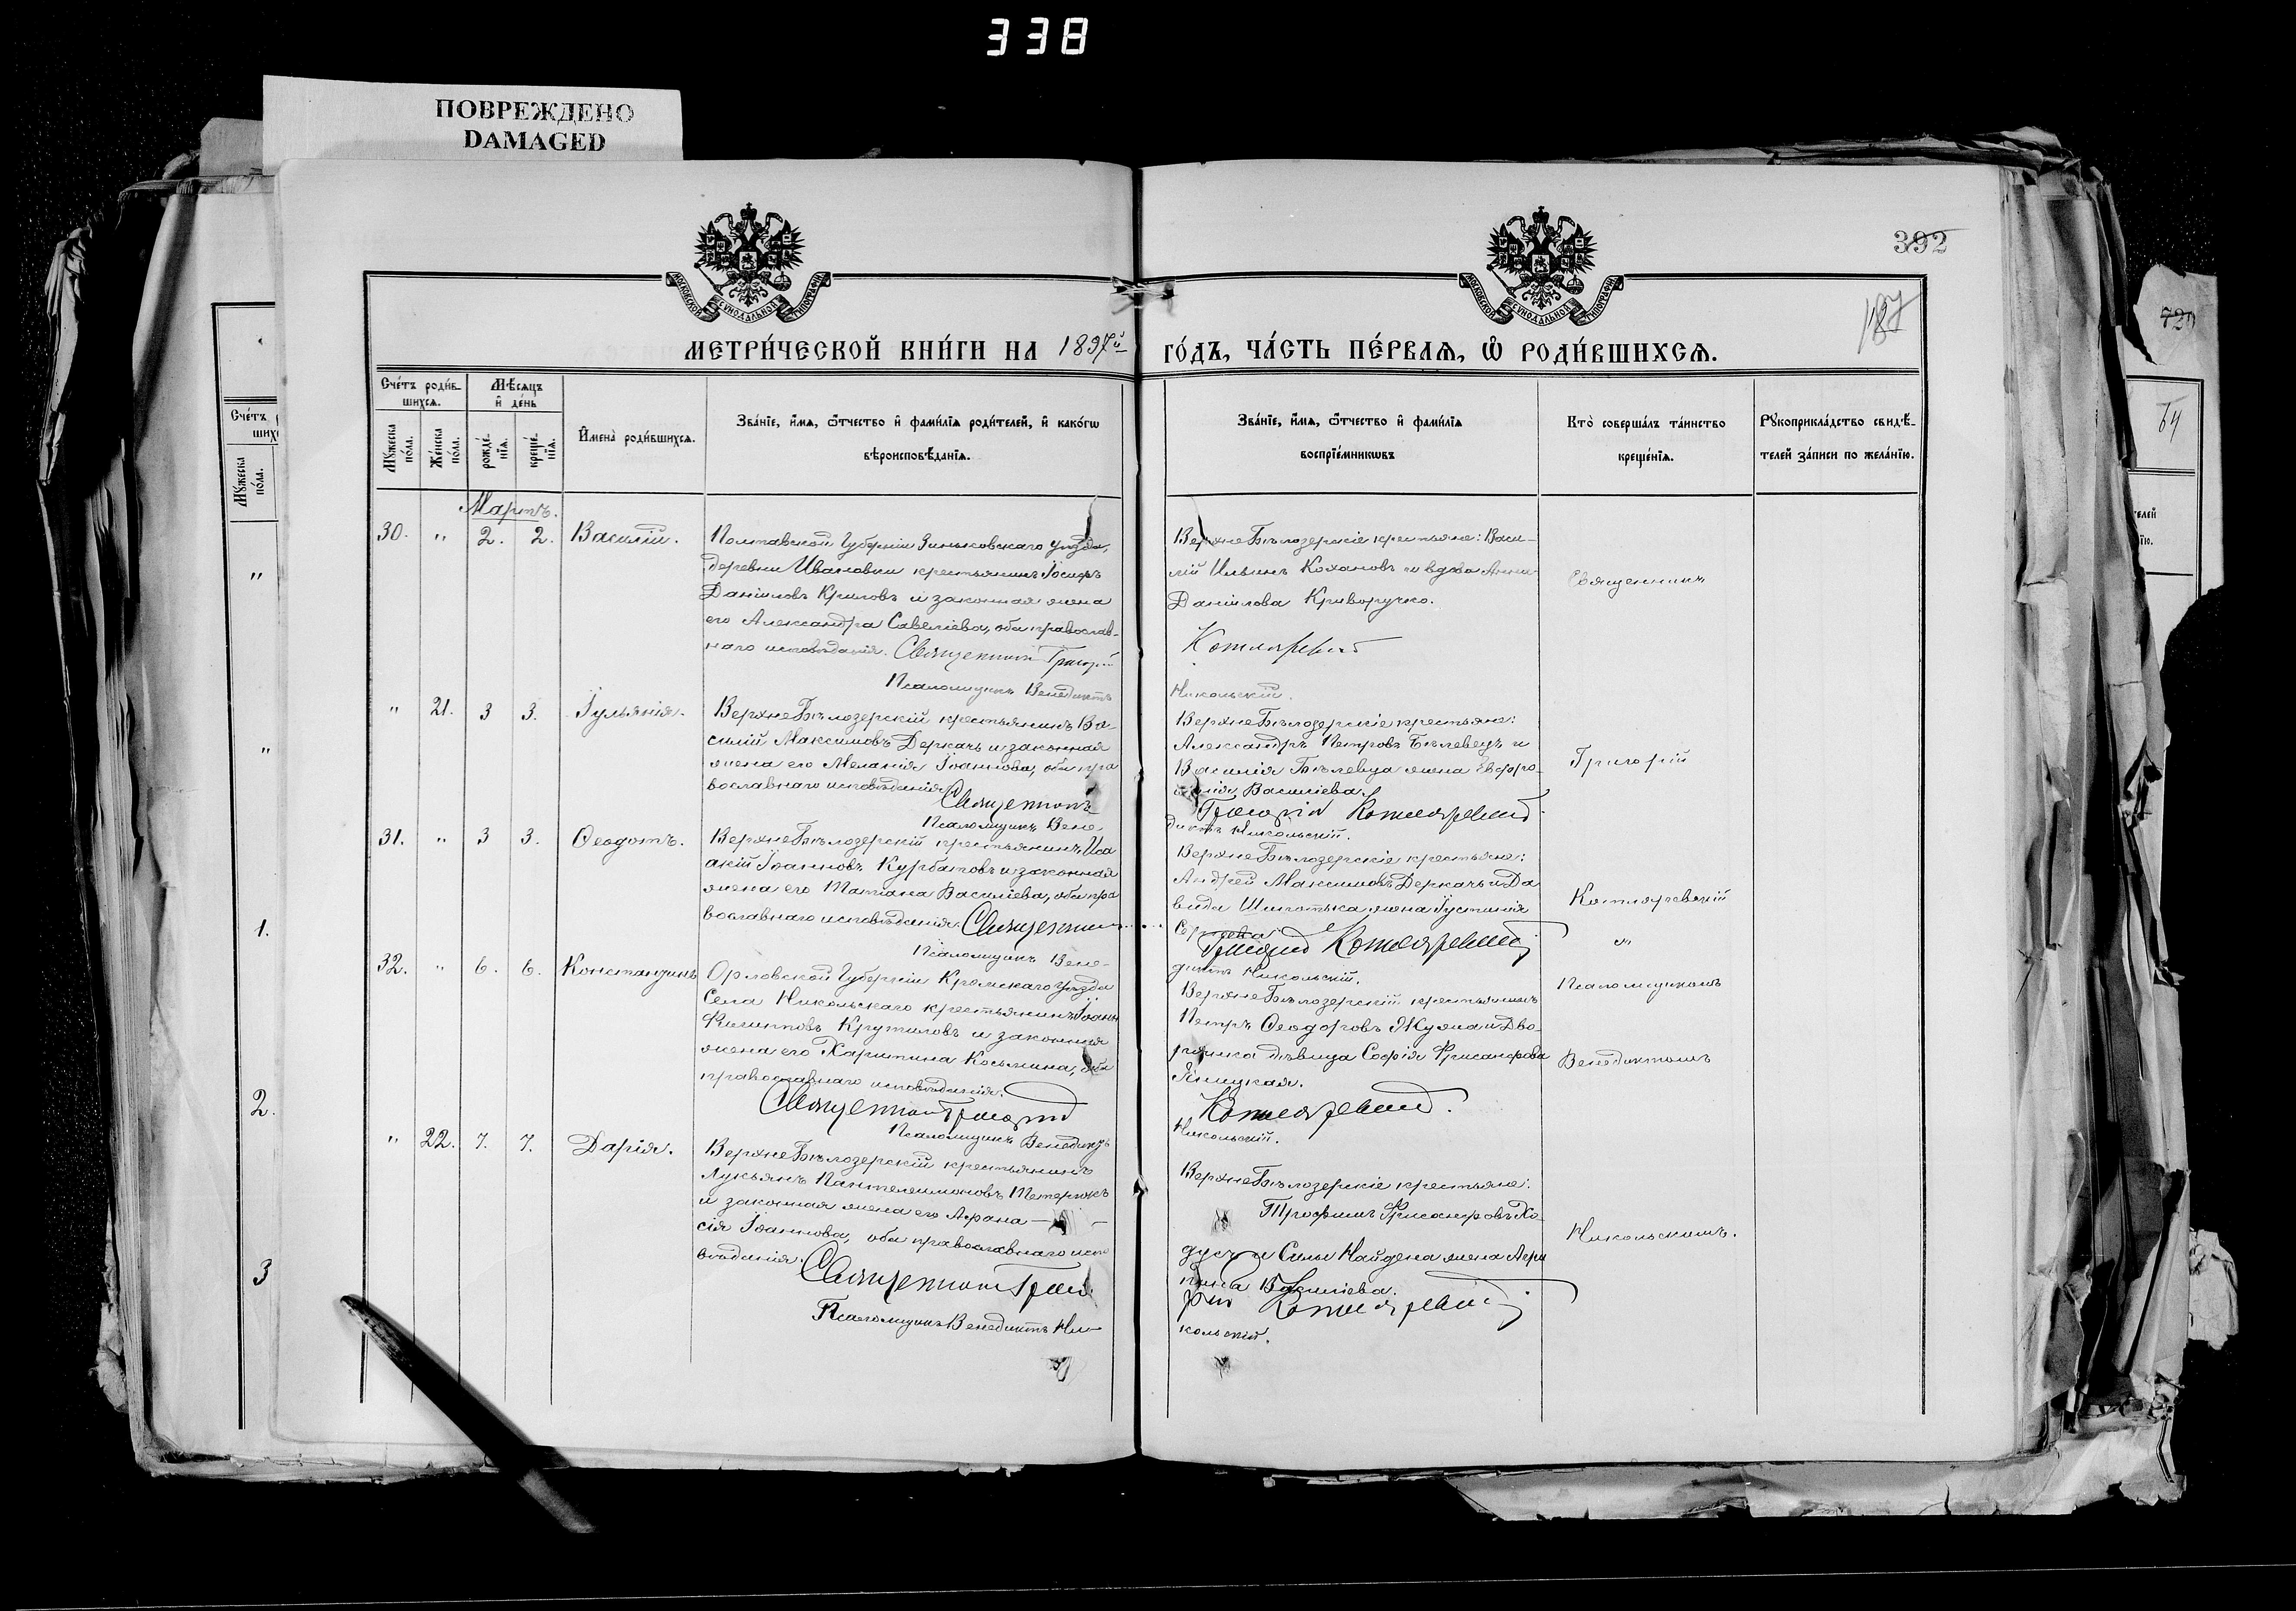 338
ПОВРЕЖДЕНО
DAMAGED
392
187
МОСКОВСКОЙ СѴНОДАЛЬНОЙ ТИПОГРАФІИ
МОСКОВСКОЙ СѴНОДАЛЬНОЙ ТИПОГРАФІИ
МЕТРИ́ЧЕСКОЙ КНИ́ГИ НА 1897й ГО́ДЪ, ЧА́СТЬ ПЕ́РВАѦ, Ѡ҆ РОДИ́ВШИХСѦ.
Сче́тъ роди́в-
шихсѧ.
Мѣ́сѧцъ
и҆ де́нь
Мꙋ́жеска
по́ла.
Же́нска
по́ла.
рожде́-
нїѧ.
креще́-
нїѧ.
И҆мена̀ роди́вшихсѧ.
Зва́нїе, и҆́мѧ, ѻ҆́тчество и҆ фами́лїѧ роди́телей, и҆ како́гѡ
вѣроисповѣ́данїѧ.
Зва́нїе, и҆́мѧ, ѻ҆́тчество и҆ фами́лїѧ
воспрїе́мникѡвъ
Кто̀ соверша́лъ та́инство
креще́нїѧ.
Рꙋкоприкла́дство свидѣ́-
телей за́писи по жела́нїю.
Мартъ.
30. " 2. 2. Василій.
Полтавской Губерніи Зиньковскаго уѣзда,
деревни Ивановки крестьянинъ Іосифъ
Даніиловъ Криловъ и законная жена
его Александра Савеліева, оба православ-
наго исповѣданія. Священникъ Григорій
Псаломщикъ Венедиктъ
Верхне Бѣлозерскіе крестьяне: Васи-
лій Ильинъ Кохановъ и вдова Анна
Даніилова Криворучко.
Котляревскій
Никольскій.
Священникъ
" 21. 3 3. Іуліанія.
Верхне Бѣлозерскій крестьянинъ Ва-
силій Максимовъ Деркачъ и законная
жена его Меланія Іоаннова, оба пра
вославнаго исповѣданія.
Священникъ
Псаломщикъ Вене-
Верхне Бѣлозерскіе крестьяне:
Александръ Петровъ Бѣлевецъ и
Василія Бѣлевца жена Евфро-
синія Василіева.
Григорій Котляревскій
диктъ Никольскій.
Григорій
31. " 3 3. Ѳеодотъ.
Верхне Бѣлозерскій крестьянинъ Иса
акій Іоанновъ Курбатовъ и законная
жена его Татіана Василіева, оба пра
вославнаго исповѣданія. Священникъ
Псаломщикъ Вене-
Верхне Бѣлозерскіе крестьяне:
Андрей Максимовъ Деркачъ и Да
вида жена Іустинія
Григорій Котляревскій
диктъ Никольскій.
Котляревскій
и
32. " 6. 6. Константинъ
Орловской Губерніи Кромскаго уѣзда
Села Никольскаго крестьянинъ Іоаннъ
Филипповъ Крутиловъ и законная
жена его Харитина Косьмина, оба
православнаго исповѣданія.
Священникъ Григорій
Псаломщикъ Венедиктъ
Верхне Бѣлозерскій крестьянинъ
Петръ Ѳеодоровъ и Дво-
рянка дѣвица Софія
Котляревскій.
Никольскій.
Псаломщикомъ
Венедиктомъ
" 22. 7. 7. Дарія.
Верхне Бѣлозерскій крестьянинъ
Лукьянъ Пантелеимоновъ
и законная жена его Афана-
сія Іоаннова, оба православнаго испо
вѣданія. Священникъ Григо
Псаломщикъ Венедиктъ Ни-
Верхне Бѣлозерскіе крестьяне:
Трофимъ Хо-
дусъ и Силы Найдена жена Агри
пина Василіева.
рій Котляревскій
кольскій.
Никольскимъ.
Сче́тъ
Мꙋ́жеска
по́ла.
"
"
1.
2.
3
64